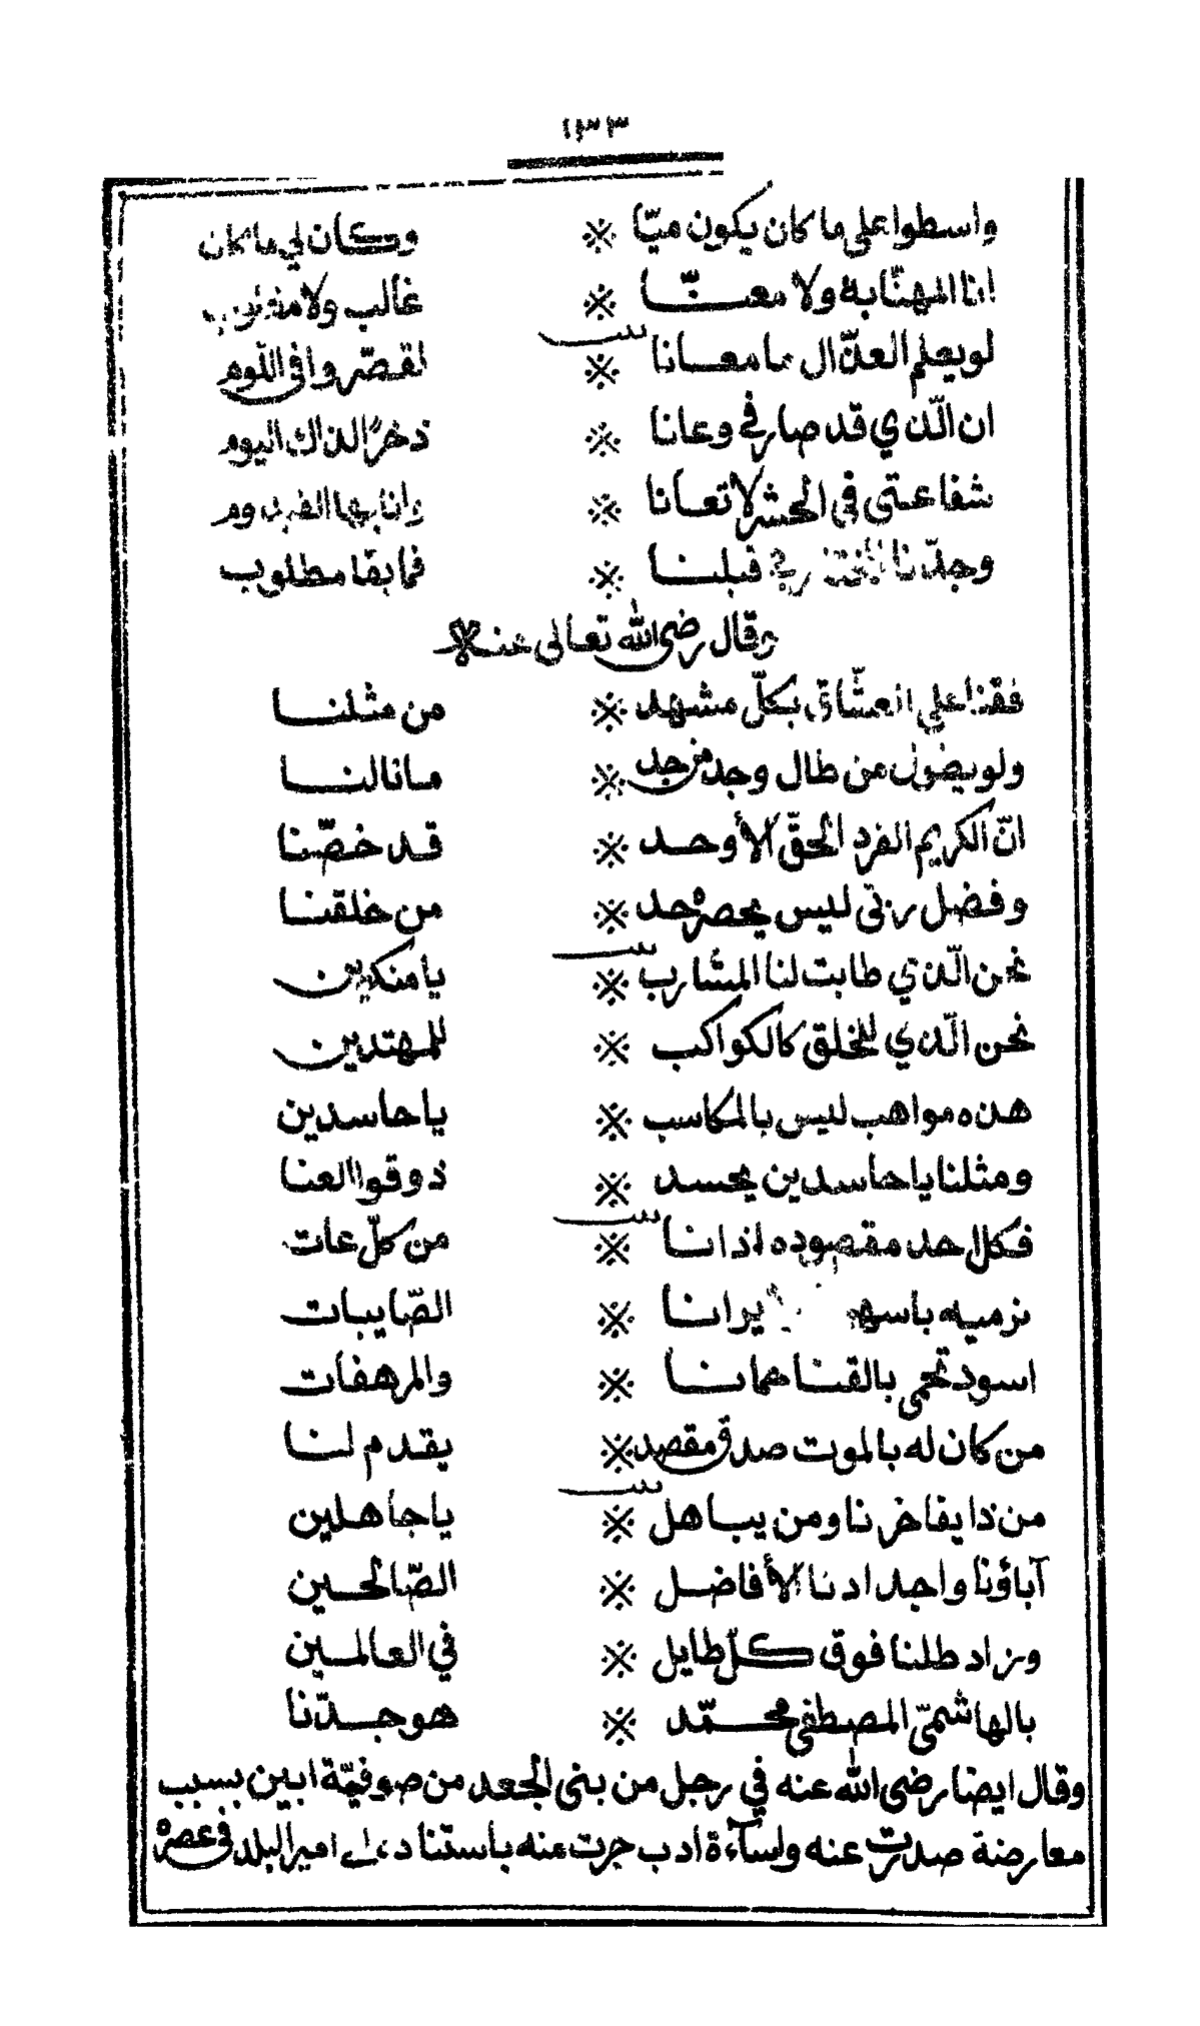 ١٣٣
واسطوا على ما كان يكون ميّا ※ وكان لي ما كان
انا المهنّا به ولا معنّا ※ غالب ولا
بيت
لو يعلم العذّال ما معانا ※ لقصّروا في اللّوم
ان الّذي قد صار في وعانا ※ ذخرًا لذاك اليوم
شفاعتى فى الحشر لا تعانا ※ وانا بها
وجدّنا المختار في قبلنا ※ فما بقا مطلوب
وقال رضى الله تعالى عنه
فقنا على العشّاق بكلّ مشهد ※ من مثلنا
ولو يضول من طال وجد من جد ※ ما نالنا
انّ الكريم الفرد الحقّ الأوحد ※ قد خصّنا
وفضل ربّى ليس يحصره حد ※ من خلقنا
بيت
نحن الّذي طابت لنا المشارب ※ يا منكرين
نحن الّذي للخلق كالكواكب ※ للمهتدين
هذه مواهب ليس بالمكاسب ※ يا حاسدين
ومثلنا يا حاسدين يحسد ※ ذوقوا العنا
بيت
فكل احد مقصوده اذانا ※ من كلّ عات
نرميه باسهم يرانا ※ الصّايبات
اسود تحمى بالقنا حمانا ※ والمرهفات
من كان له بالموت صدق مقصد ※ يقدم لنا
بيت
من ذا يفاخرنا ومن يباهل ※ يا جاهلين
آباؤنا واجدادنا الأفاضل ※ الصّالحين
وزاد طلنا فوق كلّ طايل ※ في العالمين
بالهاشمىّ المصطفى محمّد ※ هو جدّنا
وقال ايضا رضى الله عنه في رجل من بنى الجعد من صوفيّة ابين بسبب
معارضة صدرت عنه واساءة ادب جرت عنه باستناده الى امير البلد فى عصره